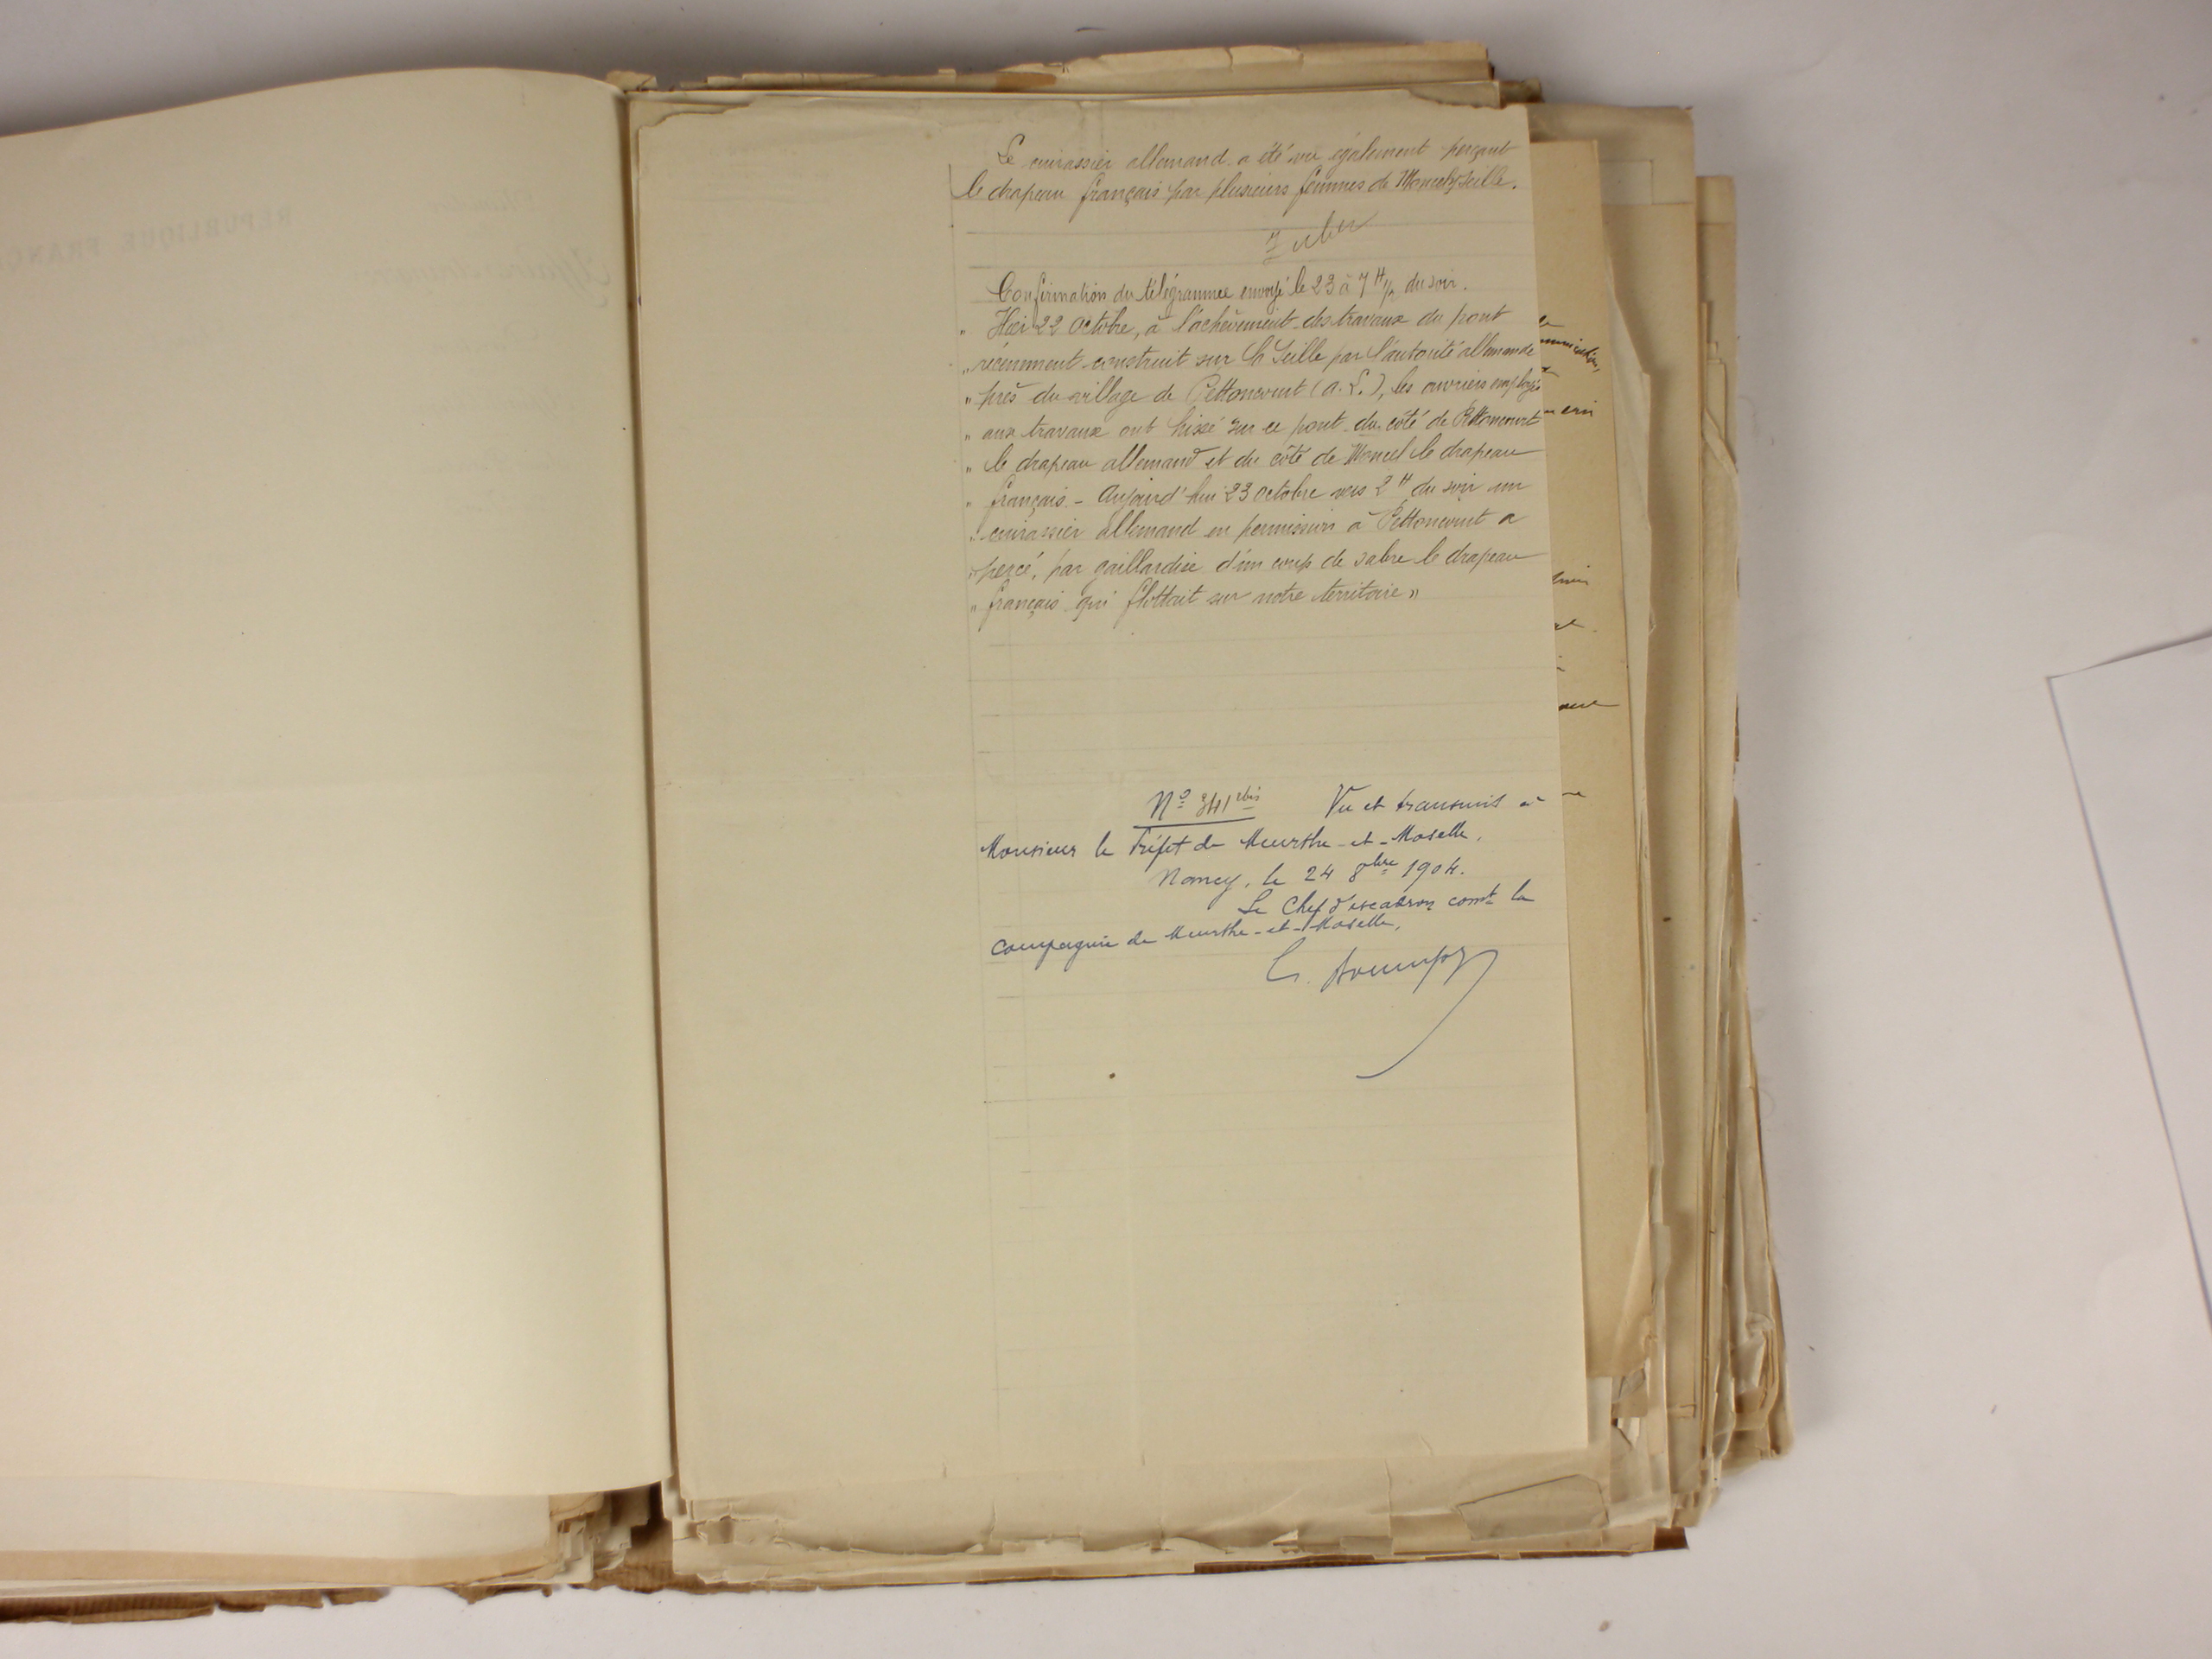 Le cuirassier allemand a été vu également perçant
le drapeau français par plusieurs femmes de Moncel s/Seille.
Confirmation du télégramme envoyé le 23 à 7 H 1/2 du soir.
" Hier 22 Octobre, à l'achèvement des travaux du pont
" récemment construit sur la Seille par l'autorité allemande
" près du village de Pettoncourt (A. L.), les ouvriers employés
" aux travaux ont hissé sur ce pont du côté de Pettoncourt
" le drapeau allemand et du côté de Moncel le drapeau
" français. - Aujourd'hui 23 Octobre vers 2 H du soir un
" cuirassier allemand en permission à Pettoncourt a
" percé, par gaillardise d'un coup de sabre le drapeau
" français qui flottait sur notre territoire "
No 341 bis Vu et transmis à
Monsieur le Préfet de Meurthe-et-Moselle.
Nancy, le 24 8bre 1904.
Le Chef d'escadron comt la
Compagnie de Meurthe-et-Moselle,
RÉPUBLIQUE FRANÇ